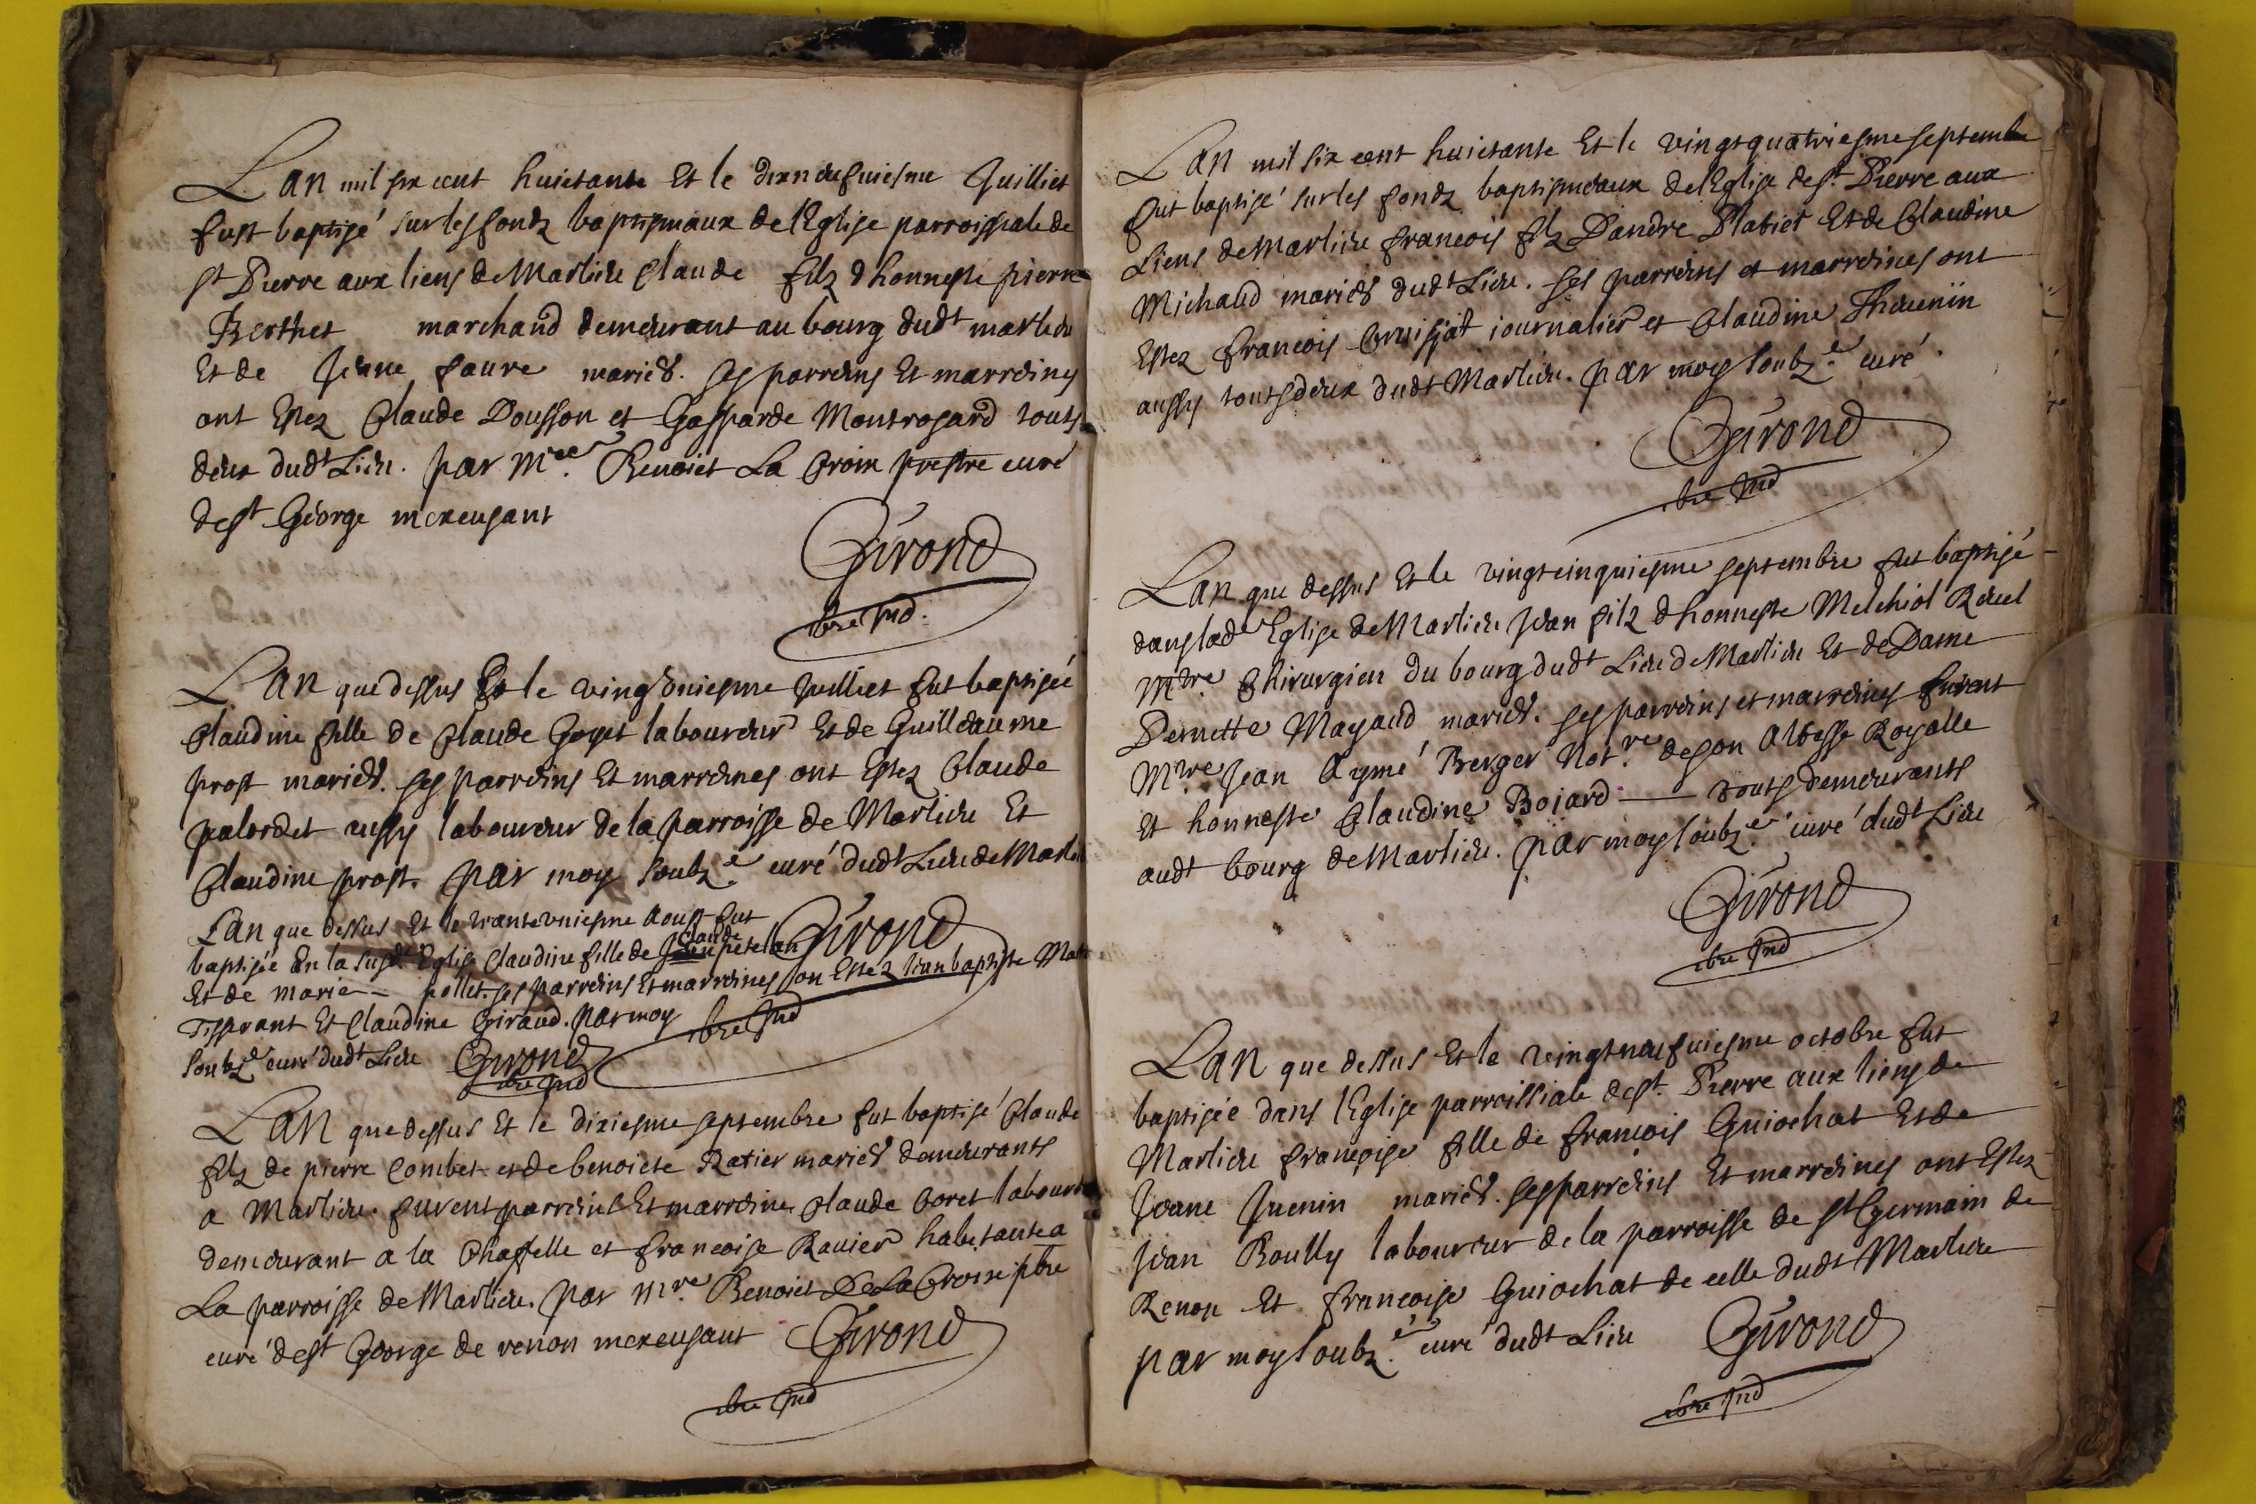 Lan mil six cent huictante Et le dixneufuiesme Juilliet
fust baptisé sur les fondz baptismaux de l'Eglise parroissiale de
st Pierre aux liens de Marlieu Claude filz d honneste pierre
Berthet marchand demeurant au bourg dudt marlieu
Et de Jeane faure mariés. ses parreins Et marreines
ont Estez Claude Dousson et Gasparde Montrosard touts
deux dudt Lieu. par Mre. Benoict La Croix prestre curé
de st George m'excusant
Girond
cure Ind.
Lan que dessus Et le vingtvniesme Juilliet fut baptisée
Claudine fille de Claude Goyet laboureur Et de Guilleaume
prost mariés. ses parreins Et marreines ont Estez Claude
palordet aussy laboureur de la parroisse de Marlieu Et
Claudine prost. par moy soubz.é curé dudt Lieu de Marlieu
Girond
cure Ind
Lan que dessus Et le trantevniesme Aoust fut
baptisée En la susdt Eglise Claudine fille de Claude petelan
Et de marie pollet. ses parreins Et marreines son Estez Jean baptiste
Tissarant Et Claudine Giraud. par moy
soubzé curé dudt Lieu Girond
cure Ind
Lan que dessus Et le dixiesme septembre fut baptisé Claude
filz de pierre Combet et de benoicte Ratier mariés demeurants
a Marlieu. furent parrein Et marreine Claude Coret laboureur
demeurant a la Chappelle et francoise Rauier habitante a
La parroisse de Marlieu. par Mre. Benoict De La Croix pbre
curé de st George de renon m'excusant Girond
cure Ind
Lan mil six cent huictante Et le vingtquatriesme septembre
fut baptisé sur les fondz baptismeaux de l'Eglise de st. Pierre aux
Liens de Marlieu francois filz D'andre Platiet Et de Claudine
Michaud mariés dudt Lieu. ses parreins et marreines ont
Estez francois Cruissat iournalier et Claudine Theuenin
aussy touts deux dudt Marlieu. par moy soubz.é curé.
Girond
cure Ind
Lan que dessus Et le vingtcinquiesme septembre fut baptisé
dans lade Eglise de Marlieu Jean filz d honneste Melchiol Reuel
Mtre. Chirurgien du bourg dudt Lieu de Marlieu Et de Dame
Pernette Mayaud mariés. ses parreins et marreines furent
Mtre. Jean Aymé Berger Not.re de son Altesse Royalle
Et honneste Claudine Boiard — touts demeurants
audt bourg de Marlieu. par moy soubz.é curé dudt Lieu
Girond
cure Ind
Lan que dessus Et le vingtneufuiesme octobre fut
baptisée dans l'Eglise parroissiale de st. Pierre aux liens de
Marlieu francoise fille de francois Guiochat Et de
Jeane Juenin mariés. ses parreins Et marreines ont Estez
Jean Roully laboureur de la parroisse de st Germain de
Renon Et francoise Guiochat de celle dudt Marlieu
par moy soubz.é curé dudt Lieu Girond
cure Ind